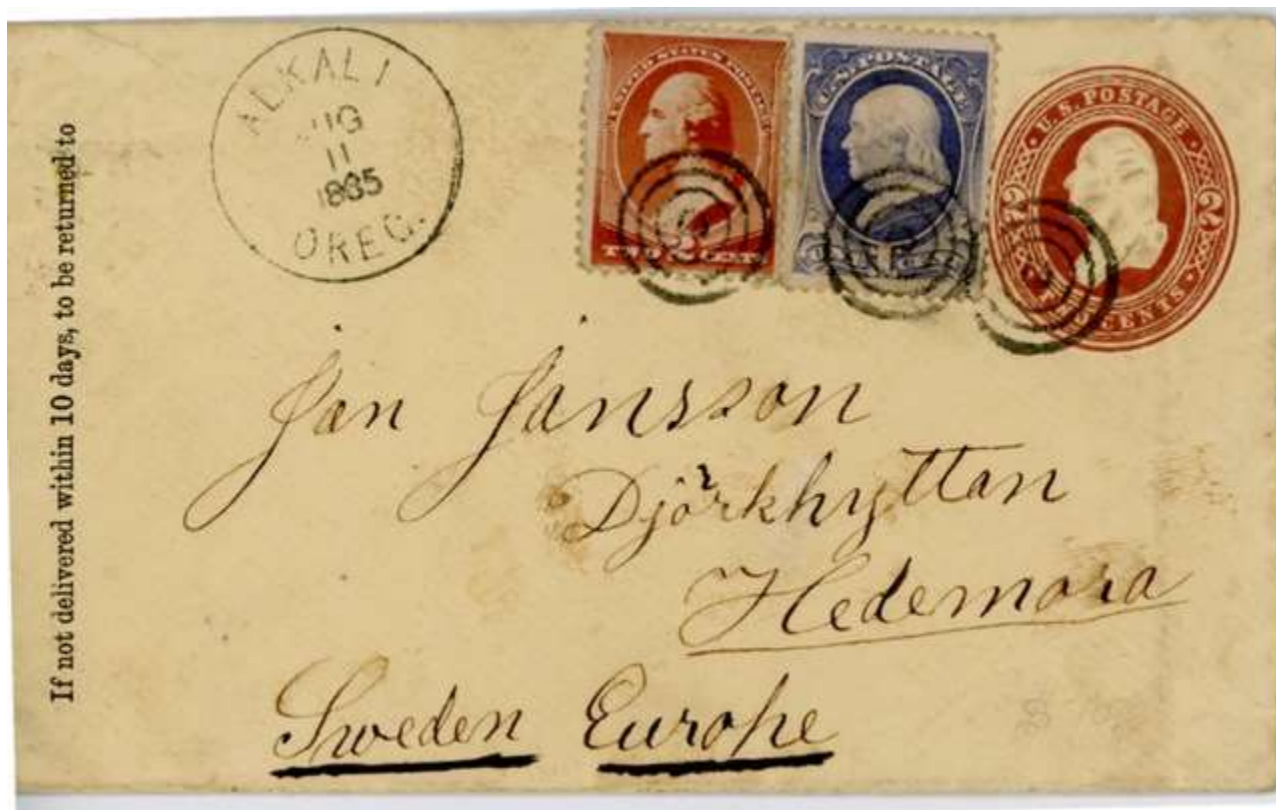 If not delivered within 10 days, to be returned to
ALKALI
AUG
11
1885
OREG.
UNITED STATES POSTAGE
TWO 2 CENTS
U.S. POSTAGE
1
U.S. POSTAGE
2 2
TWO CENTS
Jan Jansson
Djörkhyttan
Hedemora
Sweden Europe